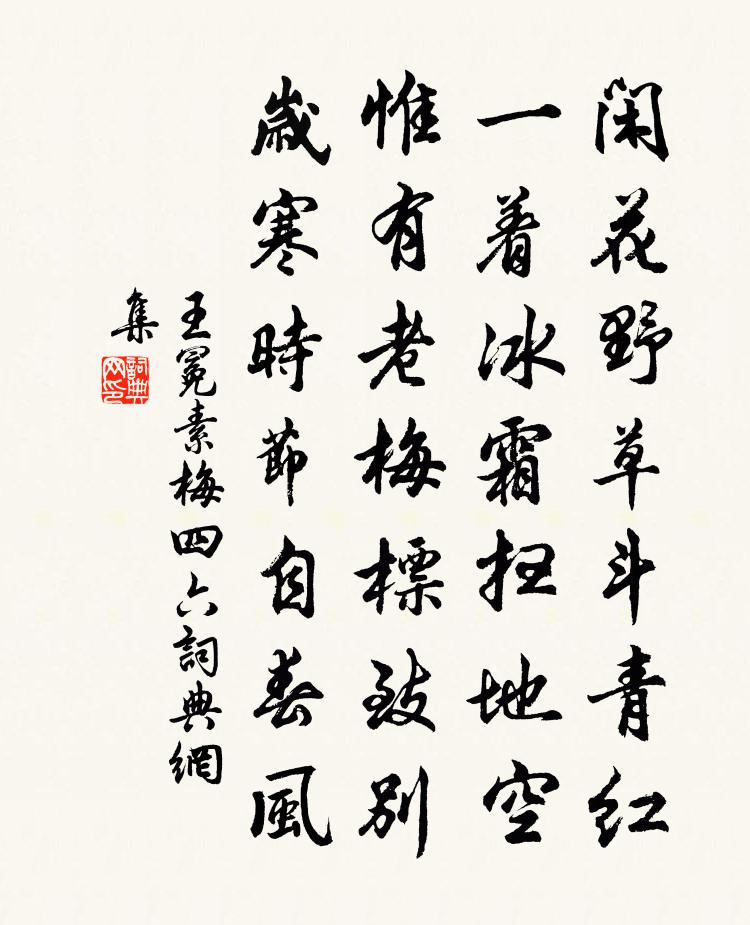 閑花野草斗青紅
一着冰霜扫地空
惟有老梅標致别
歲寒時節自春風
王冕素梅四六詞典網
集
詞典
网印